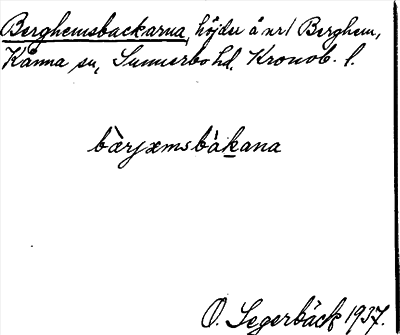 Berghemsbackarna, höjder å nr1 Berghem,
Kånna sn, Sunnerbo hd. Kronob. l.
bàrjxmsbàkana
O. Segerbäck 1937.